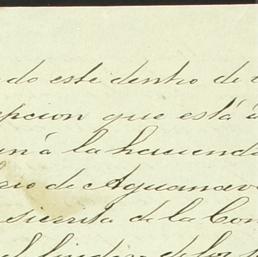 do este dentro de
epcion que está á
un á la hacienda
de Aguanav
sierra de la Con
el lindero de los